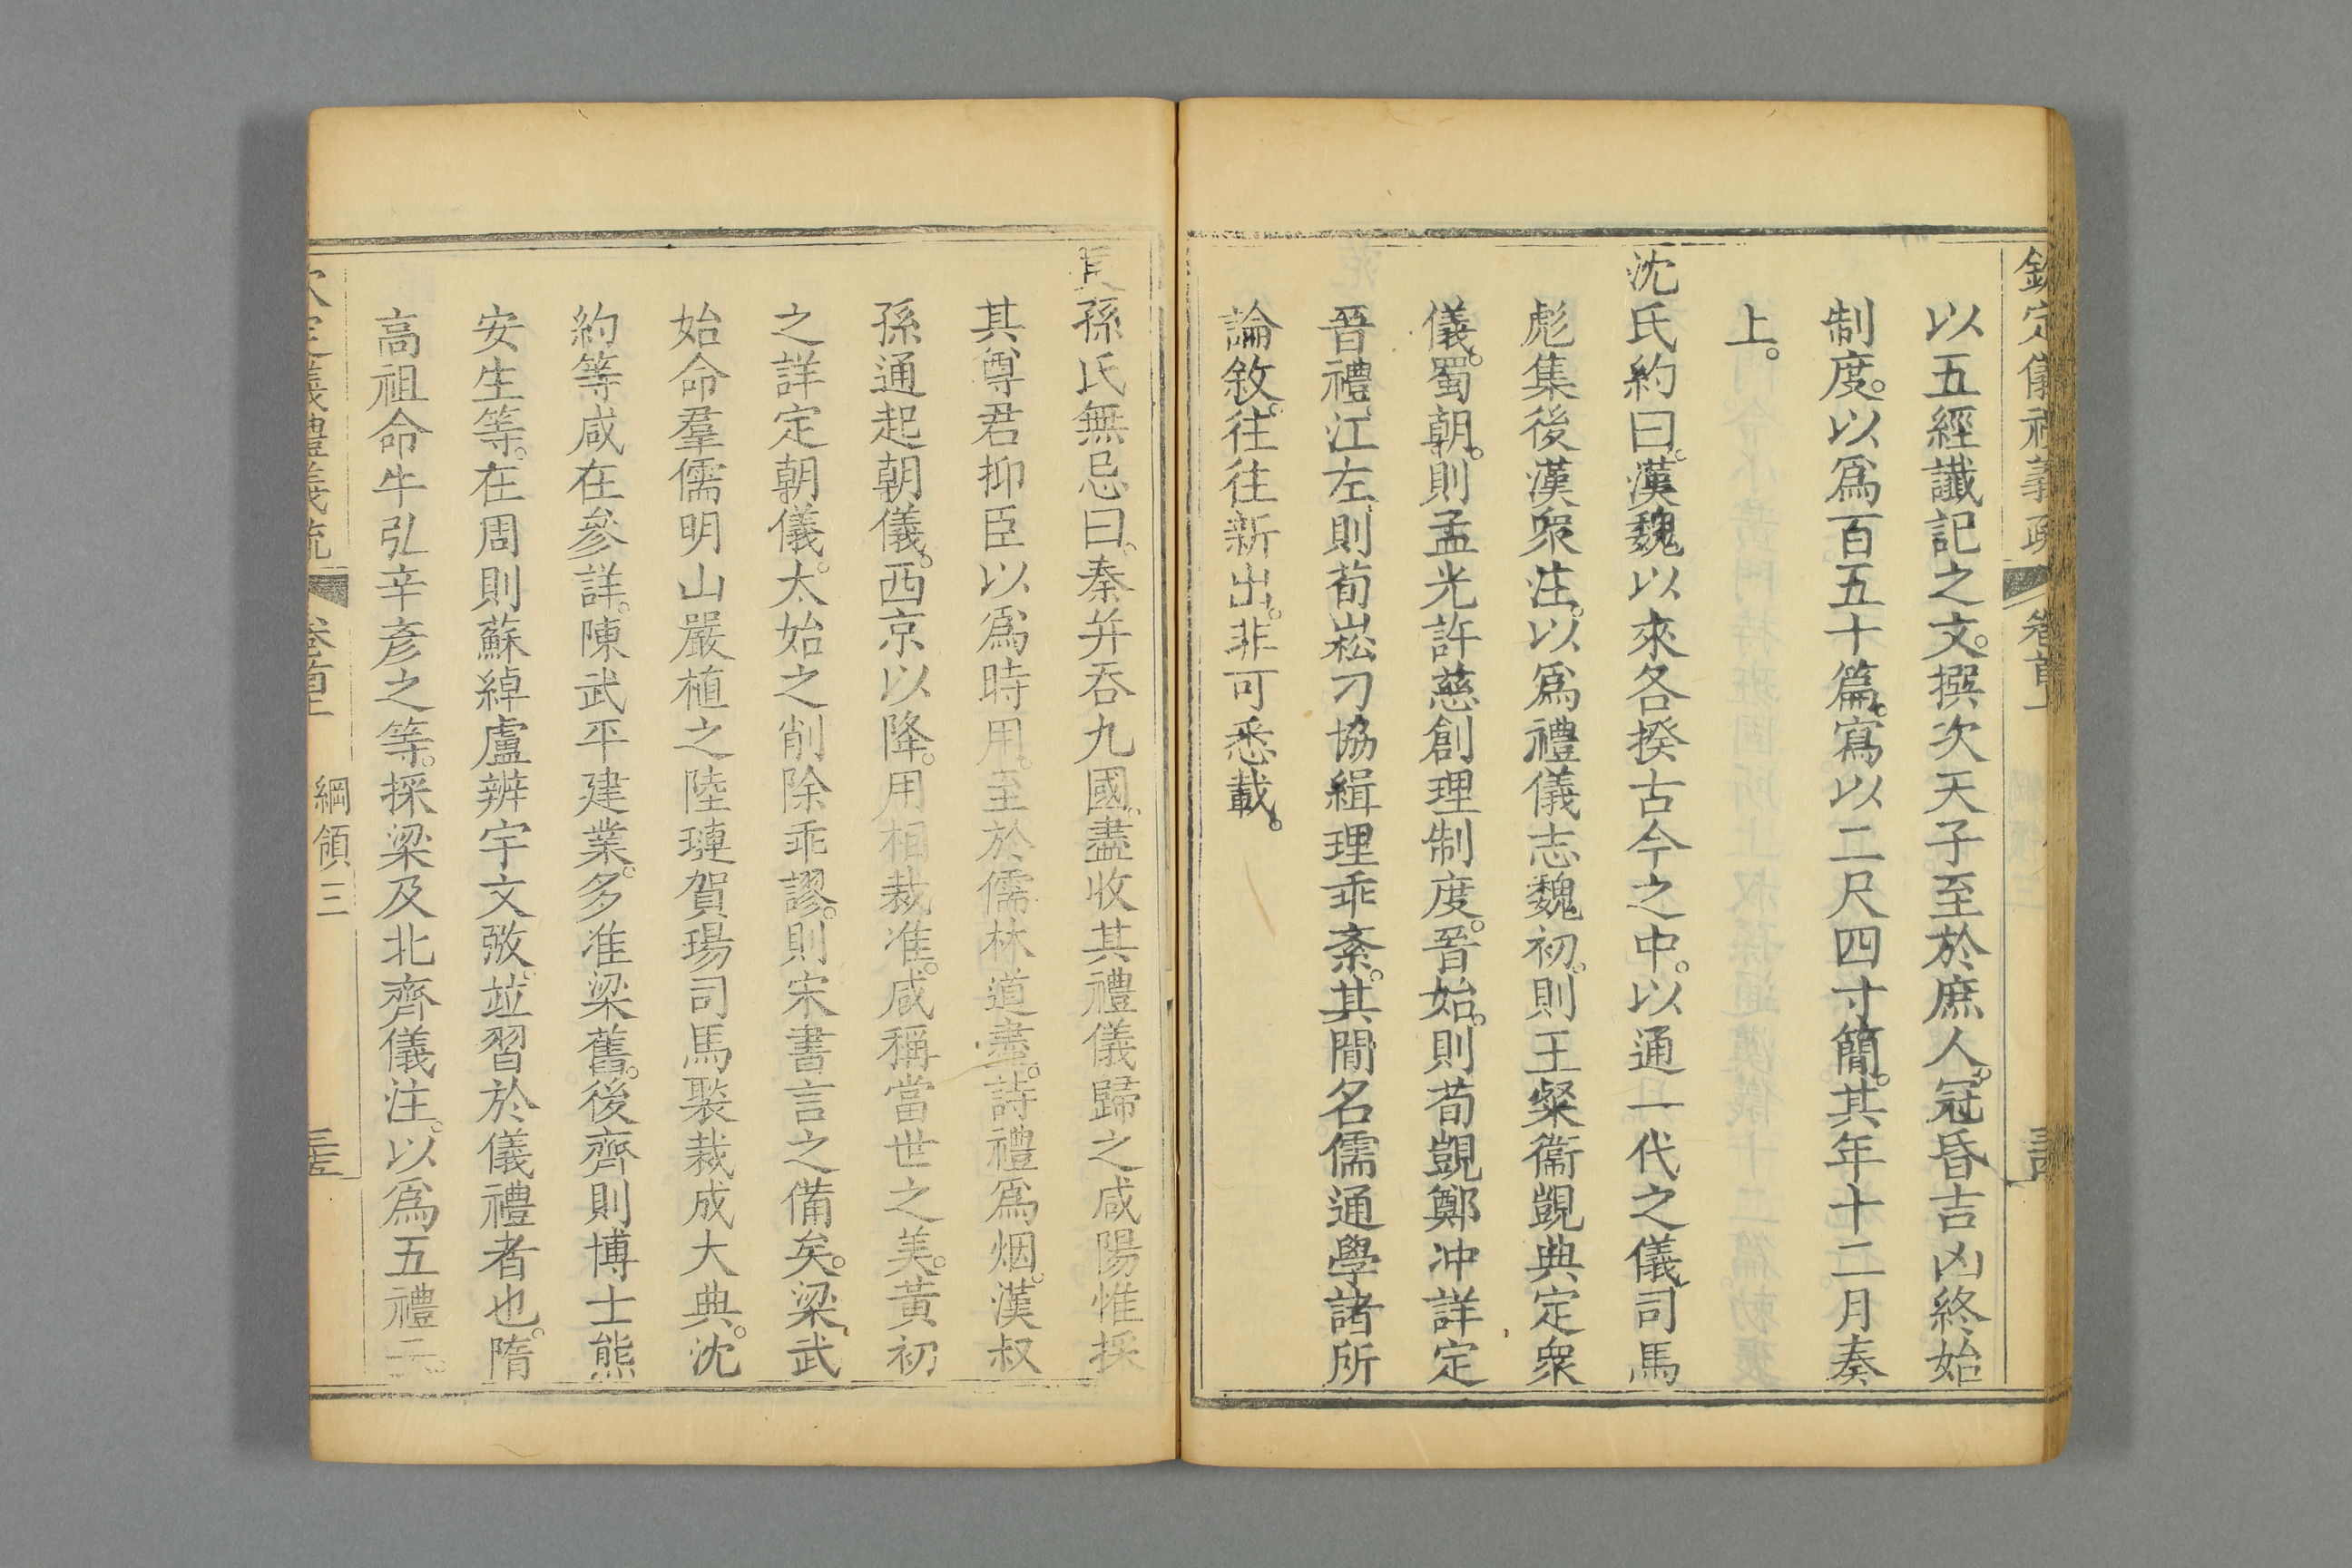 欽定儀禮義疏 卷首上
以五經讖記之文。撰次天子至於庶人。冠昏吉凶終始
制度。以爲百五十篇。寫以二尺四寸簡。其年十二月奏
上。
沈氏約曰。漢魏以來各揆古今之中。以通一代之儀。司馬
彪集後漢衆注。以爲禮儀志魏初。則王粲衞覬典定衆
儀。蜀朝。則孟光許慈創理制度。晉始。則荀覬鄭冲詳定
晉禮。江左則荀崧刁協緝理乖紊。其閒名儒通學諸所
論敘。往往新出。非可悉載。
孫氏無忌曰。秦幷吞九國。盡收其禮儀歸之咸陽惟採
其尊君抑臣以爲時用。至於儒林道盡。詩禮爲烟。漢叔
孫通起朝儀。西京以降。用相裁准。咸稱當世之美。黃初
之詳定朝儀。太始之削除乖謬。則宋書言之備矣。梁武
始命羣儒明山嚴植之陸璉賀瑒司馬褧裁成大典。沈
約等咸在參詳。陳武平建業。多准梁舊。後齊則博士熊
安生等。在周則蘇綽盧辨宇文㢸。竝習於儀禮者也。隋
高祖命牛弘辛彥之等。採梁及北齊儀注。以爲五禮云。
欽定儀禮義疏 卷首上 綱領三